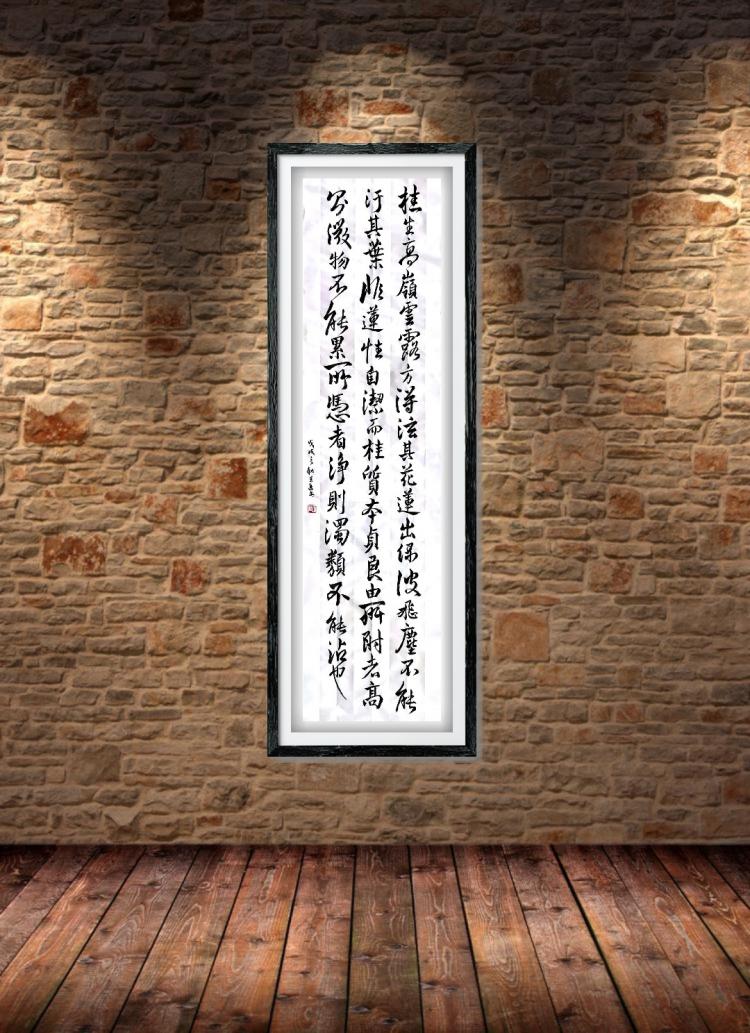 桂生高嶺雲露方得泫其花蓮出綠波飛塵不能
汙其葉非蓮性自潔而桂質本貞良由所附者高
則微物不能累所憑者淨則濁類不能沾也
戊戌